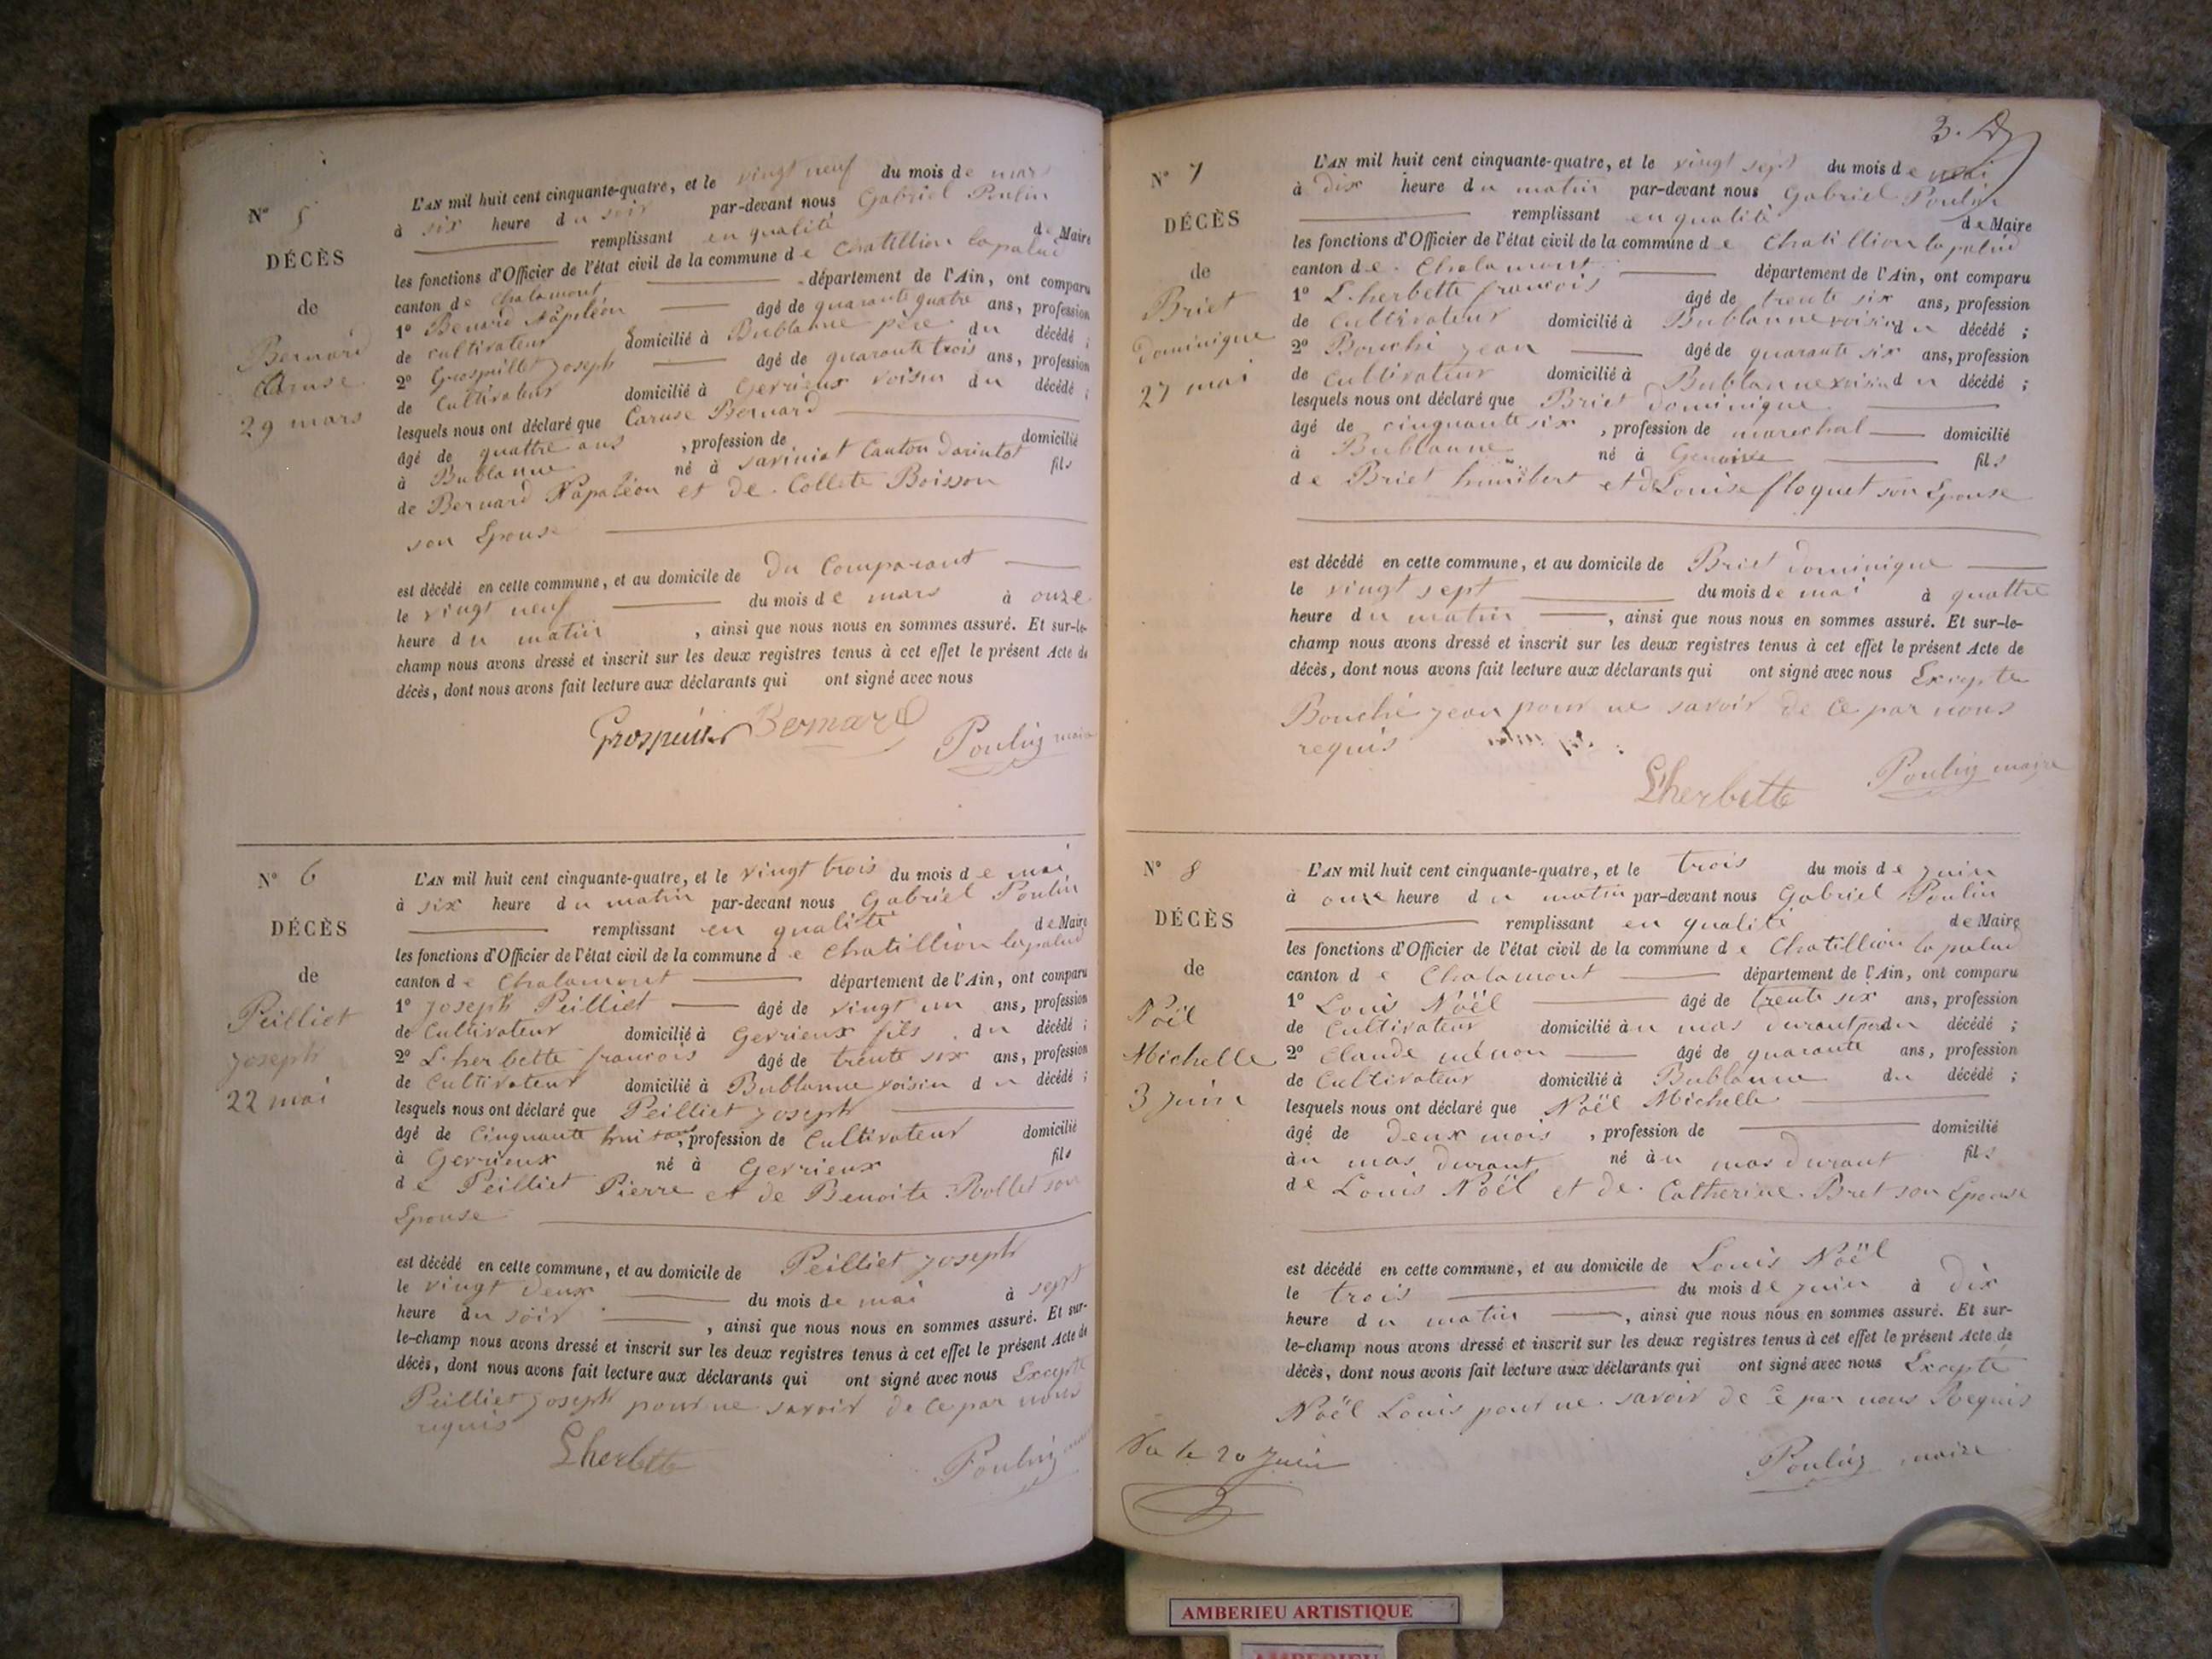 N° 5
DÉCÈS
de
Bernard
Caruse
29 mars
L'AN mil huit cent cinquante-quatre, et le vingt neuf du mois de mars
à six heure du soir par-devant nous Gabriel Poulin
remplissant en qualité de Maire
les fonctions d'Officier de l'état civil de la commune de Chatillion lapalud
canton de Chalamont département de l'Ain, ont comparu
1° Benard Napoléon âgé de quarante quatre ans, profession
de cultivateur domicilié à Bublanne père du décédé ;
2° Grospillet Joseph âgé de quarante trois ans, profession
de Cultivateur domicilié à Gevrieux voisin du décédé ;
lesquels nous ont déclaré que Caruse Bernard
âgé de quattre ans , profession de domicilié
à Bublanne né à Saviniat Canton fils
de Bernard Napoléon et de Collete Boisson
son Epouse
est décédé en cette commune, et au domicile de du Comparant
le vingt neuf du mois de mars à onze
heure du matin , ainsi que nous nous en sommes assuré. Et sur-le-
champ nous avons dressé et inscrit sur les deux registres tenus à cet effet le présent Acte de
décès, dont nous avons fait lecture aux déclarants qui ont signé avec nous
Bernard Poulin maire
N° 6
DÉCÈS
de
Peilliet
Joseph
22 mai
L'AN mil huit cent cinquante-quatre, et le vingt trois du mois de mai
à six heure du matin par-devant nous Gabriel Poulin
remplissant en qualité de Maire
les fonctions d'Officier de l'état civil de la commune de Chatillion lapalud
canton de Chalamont département de l'Ain, ont comparu
1° Joseph Peilliet âgé de vingt un ans, profession
de Cultivateur domicilié à Gevrieux fils du décédé ;
2° L'herbette francois âgé de trente six ans, profession
de Cultivateur domicilié à Bublanne voisin du décédé ;
lesquels nous ont déclaré que Peilliet Joseph
âgé de Cinquante huit ans, profession de Cultivateur domicilié
à Gevrieux né à Gevrieux fils
de Peilliet Pierre et de Benoite Rollet son
Epouse
est décédé en cette commune, et au domicile de Peilliet Joseph
le vingt deux du mois de mai à sept
heure du soir , ainsi que nous nous en sommes assuré. Et sur-
le-champ nous avons dressé et inscrit sur les deux registres tenus à cet effet le présent Acte de
décès, dont nous avons fait lecture aux déclarants qui ont signé avec nous Excepté
Peilliet Joseph pour ne savoir de ce par nous
requis
Lherbette Poulin
3.
N° 7
DÉCÈS
de
Briet
dominique
27 mai
L'AN mil huit cent cinquante-quatre, et le vingt sept du mois de mai
à dix heure du matin par-devant nous Gabriel Poulin
remplissant en qualité de Maire
les fonctions d'Officier de l'état civil de la commune de Chatillion lapalud
canton de Chalamont département de l'Ain, ont comparu
1° L'herbette francois âgé de trente six ans, profession
de Cultivateur domicilié à Bublanne voisin du décédé ;
2° Bouché Jean âgé de quarante six ans, profession
de Cultivateur domicilié à Bublanne voisin du décédé ;
lesquels nous ont déclaré que Briet dominique
âgé de cinquante six , profession de marechal domicilié
à Bublanne né à fils
de Briet humbert et de Louise floquet son Epouse
est décédé en cette commune, et au domicile de Briet dominique
le vingt sept du mois de mai à quattre
heure du matin , ainsi que nous nous en sommes assuré. Et sur-le-
champ nous avons dressé et inscrit sur les deux registres tenus à cet effet le présent Acte de
décès, dont nous avons fait lecture aux déclarants qui ont signé avec nous Excepte
Bouché Jean pour ne savoir de ce par nous
requis
Lherbette Poulin maire
N° 8
DÉCÈS
de
Noël
Michelle
3 Juin
L'AN mil huit cent cinquante-quatre, et le trois du mois de Juin
à onze heure du matin par-devant nous Gabriel Poulin
remplissant en qualité de Maire
les fonctions d'Officier de l'état civil de la commune de Chatillion lapalud
canton de Chalamont département de l'Ain, ont comparu
1° Louis Noël âgé de trente six ans, profession
de Cultivateur domicilié àu mas durant père du décédé ;
2° Claude ménon âgé de quarante ans, profession
de Cultivateur domicilié à Bublanne du décédé ;
lesquels nous ont déclaré que Noël Michelle
âgé de deux mois , profession de domicilié
àu mas durant né àu mas durant fils
de Louis Noël et de Catherine Bret son Epouse
est décédé en cette commune, et au domicile de Louis Noël
le trois du mois de Juin à dix
heure du matin , ainsi que nous nous en sommes assuré. Et sur-
le-champ nous avons dressé et inscrit sur les deux registres tenus à cet effet le présent Acte de
décès, dont nous avons fait lecture aux déclarants qui ont signé avec nous Excepté
Noël Louis pour ne savoir de ce par nous Requis
Vu le 20 Juin
Poulin maire
AMBERIEU ARTISTIQUE
AMBERIEU